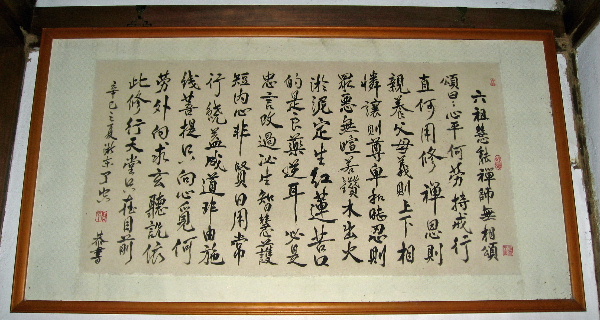 六祖慧能禪師無相頌
頌曰:心平何勞持戒行
直何用修禪恩則
親養父母義則上下相
憐讓則尊卑和睦忍則
眾惡無喧若鑽木出火
淤泥定生紅蓮苦口
的是良藥逆耳必是
忠言改過必生知慧護
短內心非賢日用常
行繞益成道非由施
錢菩提只向心覓何
勞外向求玄聽說依
此修行天堂只在目前
辛巳之夏於京
恭書